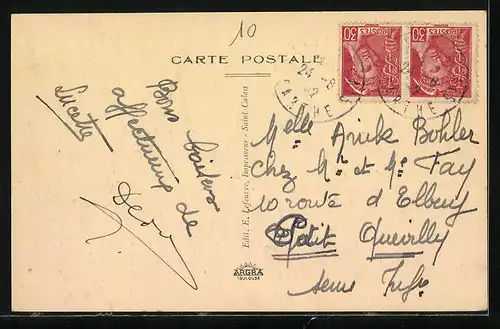 10
CARTE POSTALE
Bons baisers
affectueux de
Lucette
Edit. E. Lefeuvre, Imprimeur - Saint-Calais
ARGRA
TOULOUSE
POSTES
30
POSTES
30
SARTHE
24
Melle Anick Bohler
Chez Mr et Me Fay
10 route d'Elbeuf
Petit Quevilly
Seine Infre